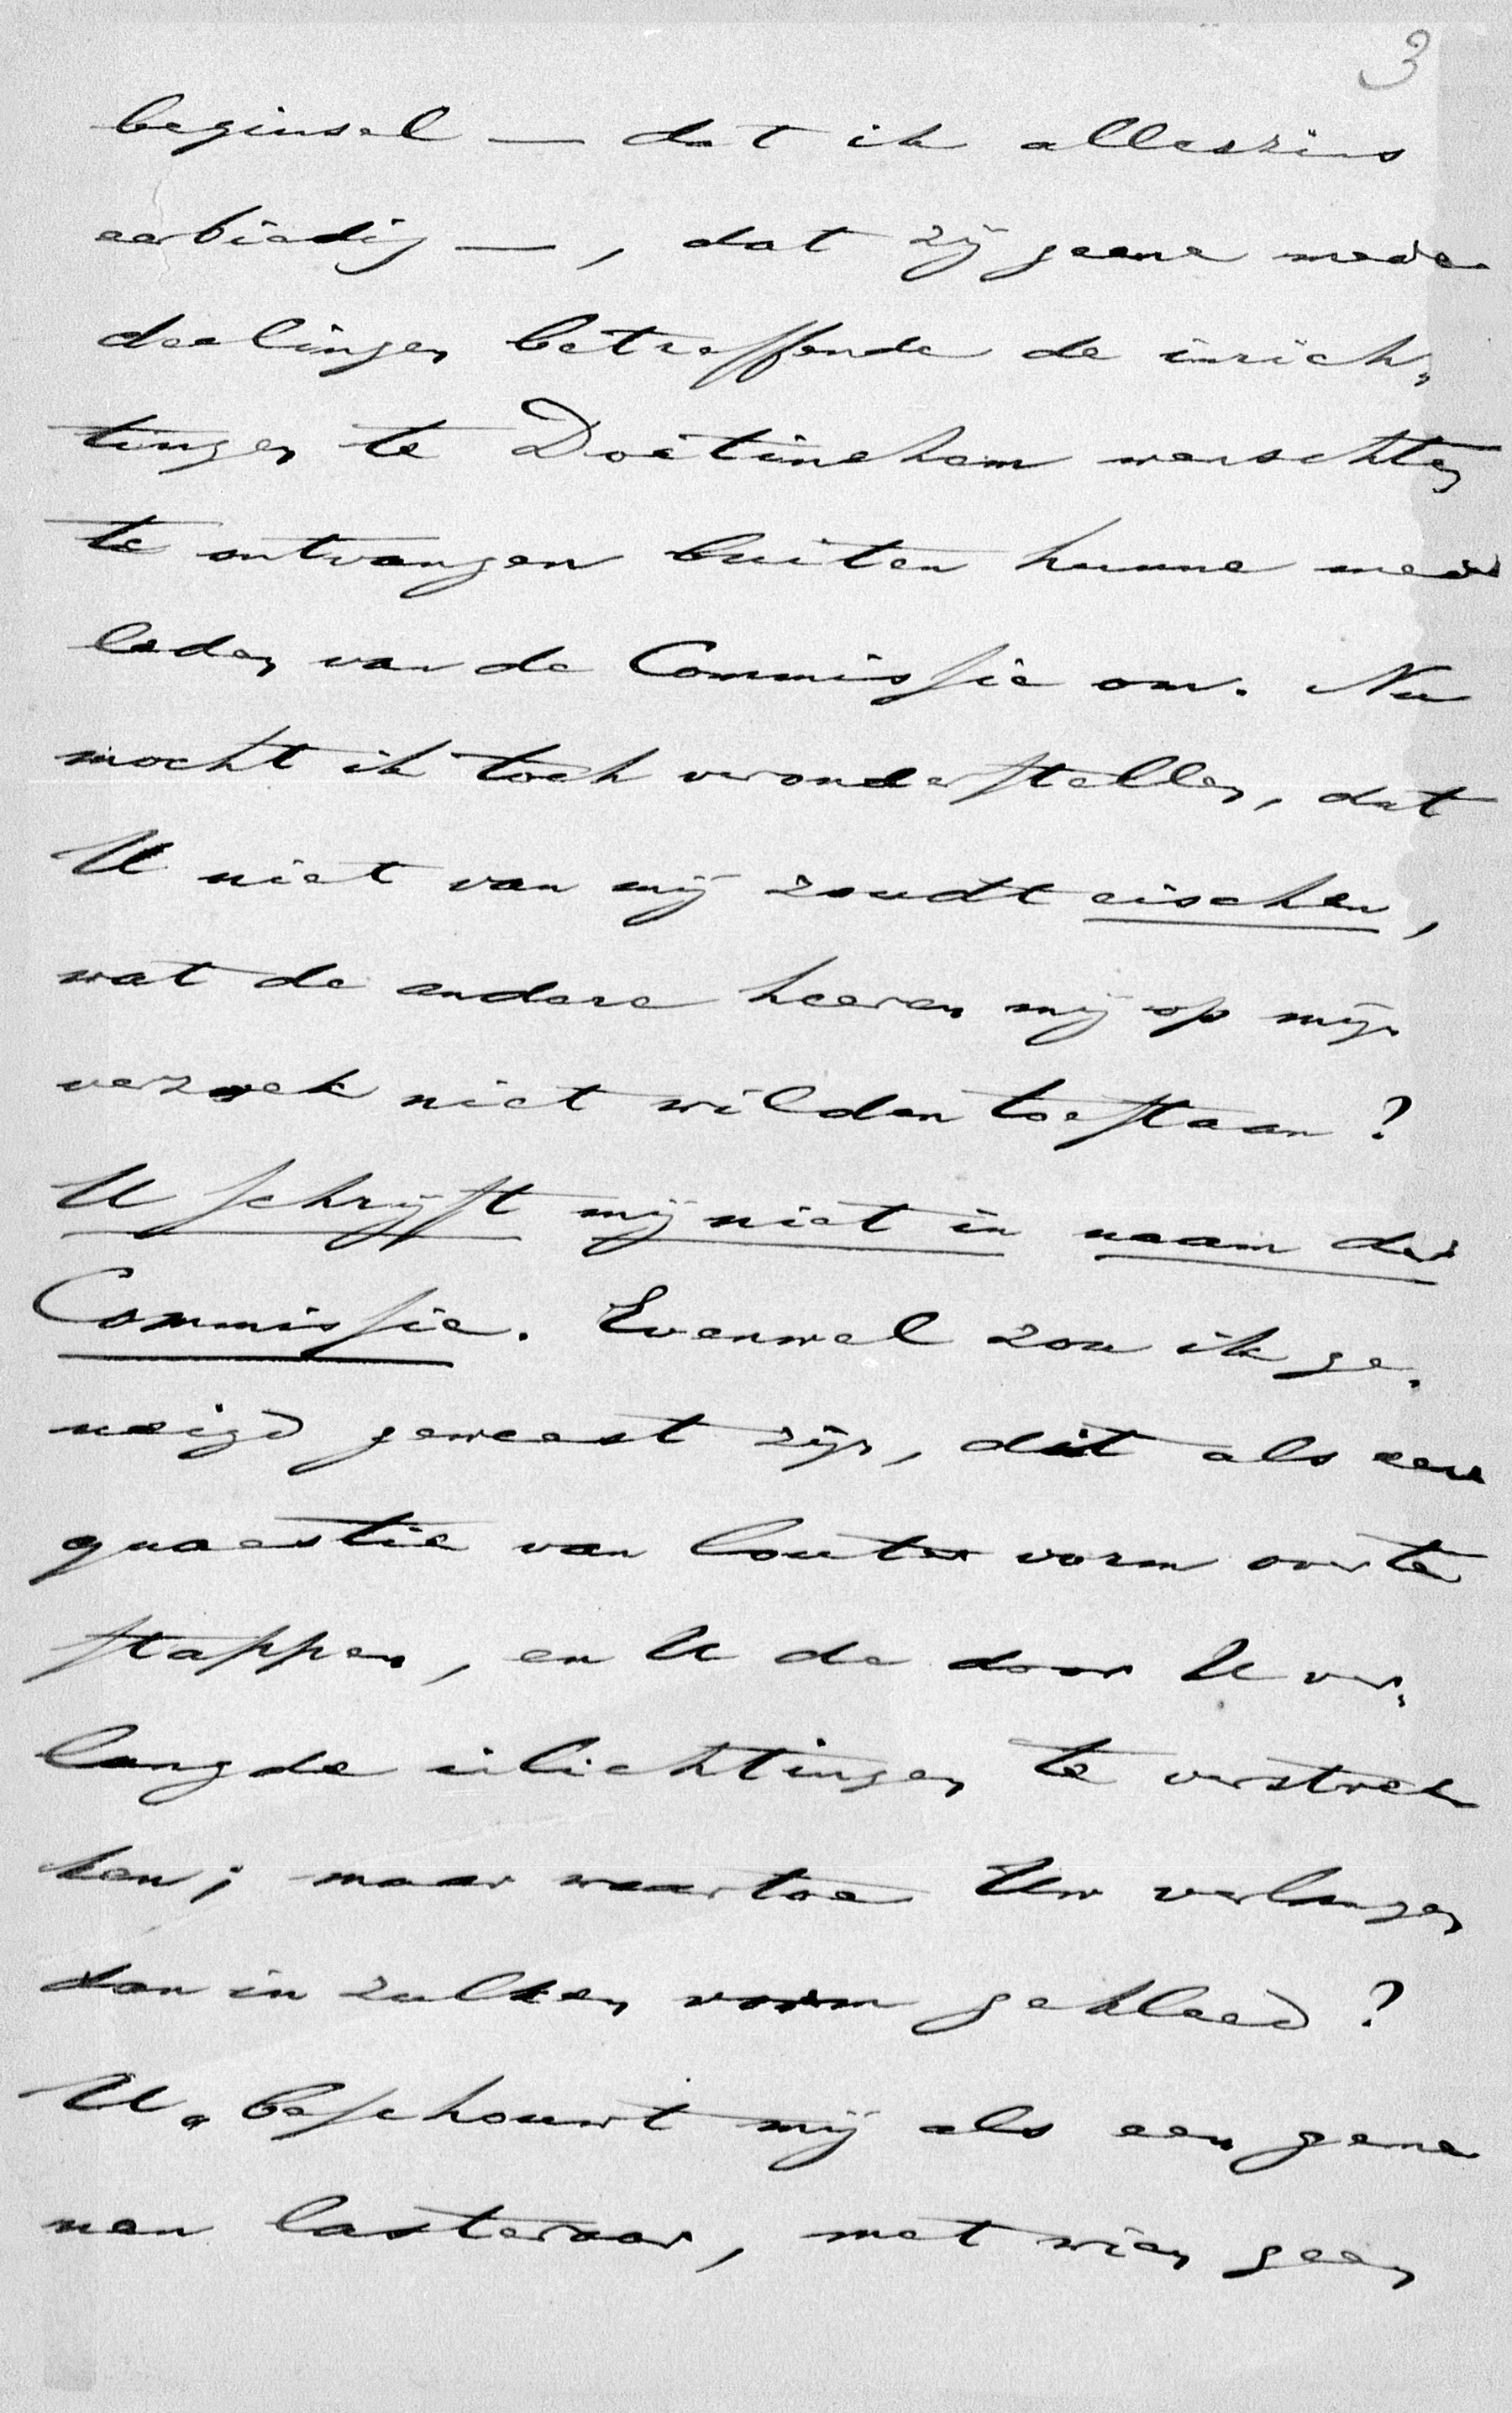 3
beginsel — dat ik alleszins
eerbiedig —, dat zij geene mede
deelingen betreffende de inrich„
tingen te Doetinchem wenschten
te ontvangen buiten hunne mede
leden van de Commissie om. Nu
mocht ik toch veronderstellen, dat
U niet van mij zoudt eischen,
wat de andere heeren mij op mijn
verzoek niet wilden toestaan?
U schrijft mij niet in naam der
Commissie. Evenwel zou ik ge„
neigd geweest zijn, dit als eene
quaestie van louter vorm over te
stappen, en U de door U ver„
langde inlichtingen te verstrek
ken; maar waartoe Uw verlangen
dan in zulken vorm gekleed?
U beschouwt mij als een geme
nen lasteraar, met wien geen